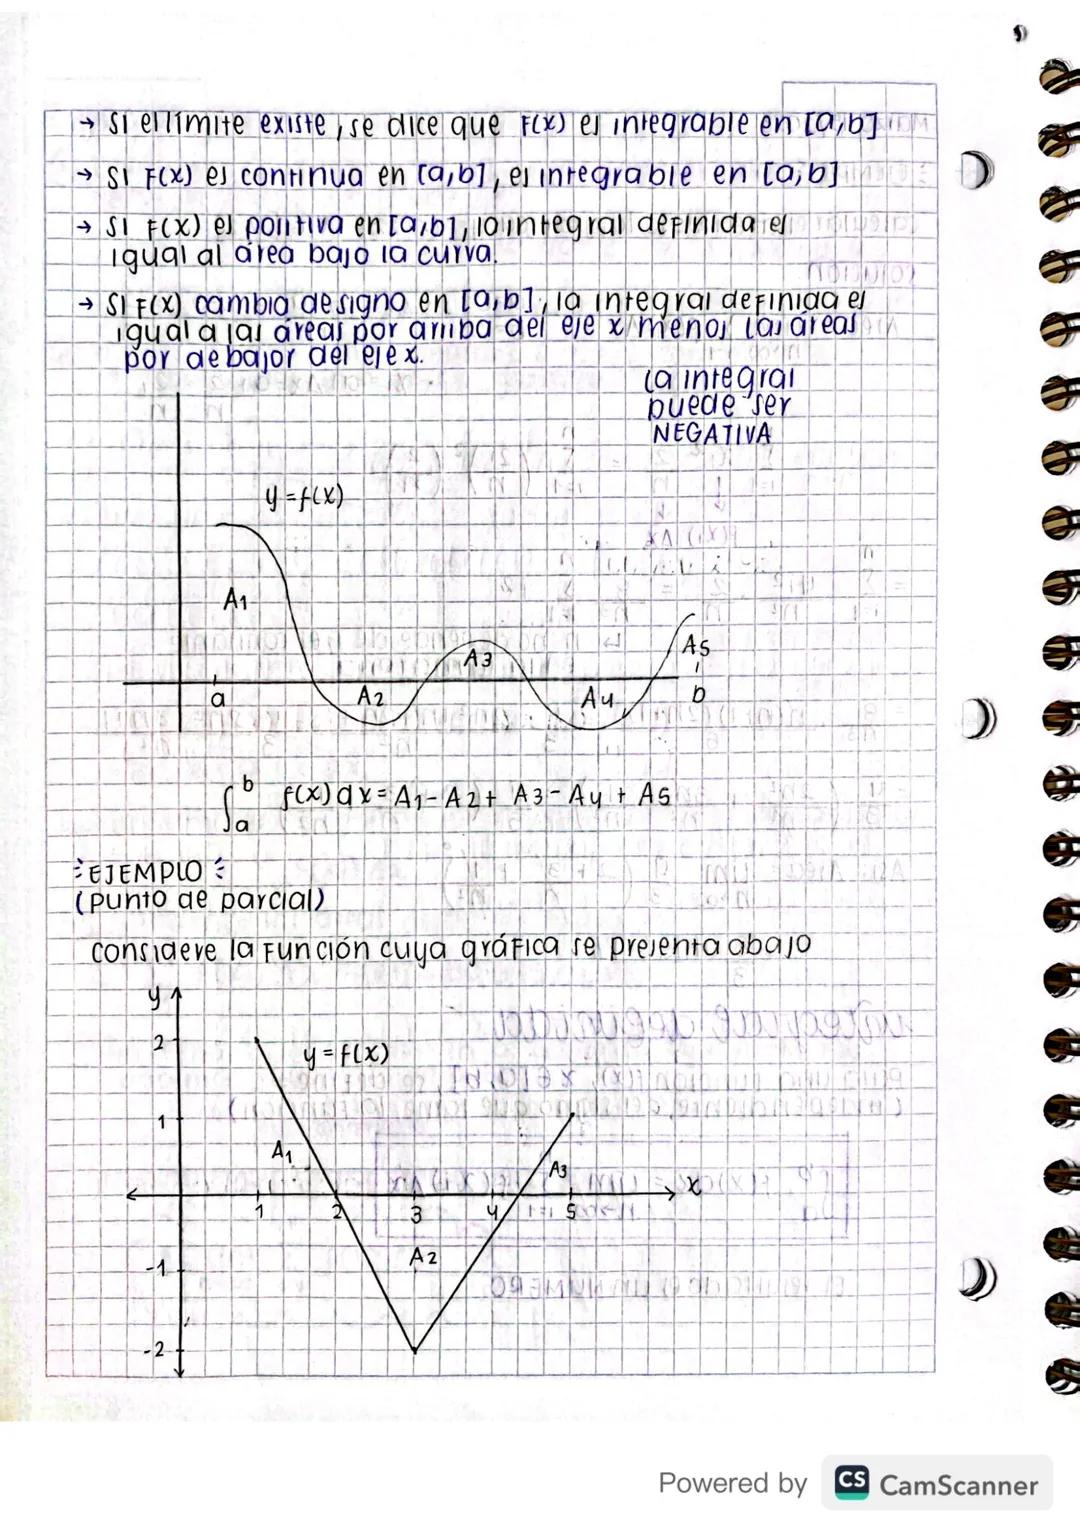 → Si el límite existe, se dice que F(x) es integrable en [a,b]
→ Si F(x) es continua en [a,b], es integrable en [a,b]
→ Si F(x) es positiva en [a,b], la integral definida es
igual al área bajo la curva.
→ Si F(x) cambia de signo en [a,b], la integral definida es
igual a las áreas por arriba del eje x menos las áreas
por debajor del eje x.
la integral
puede ser
NEGATIVA
y = f(x)
A1
A2
A3
A4
A5
a
b
∫ₐᵇ f(x)dx = A1 - A2 + A3 - A4 + A5
EJEMPLO
(punto de parcial)
considere la Función cuya gráfica se presenta abajo
y
2
y = f(x)
1
A1
A3
x
1 2 3 4 5
A2
-1
-2
Powered by CS CamScanner